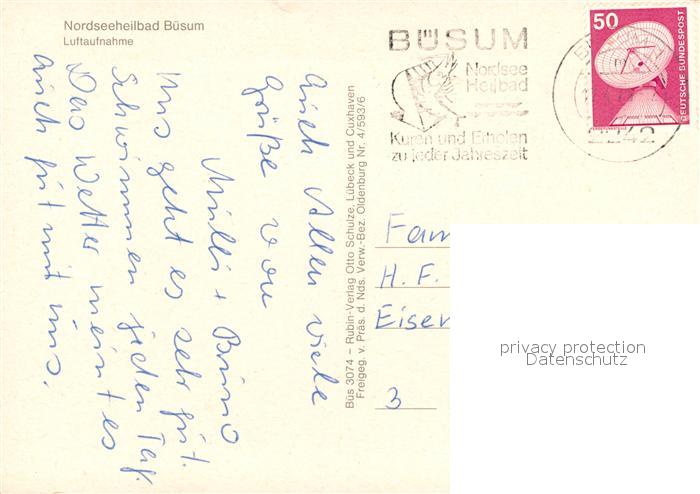 Nordseeheilbad Büsum
Luftaufnahme
BÜSUM
Nordsee
Heilbad
Kuren und Erholen
zu jeder Jahreszeit
50
DEUTSCHE BUNDESPOST
2242
Euch Allen viele
Grüße von
Milli + Bruno
Uns geht es sehr gut.
Schwimmen jeden Tag.
Das Wetter meint es
auch gut mit uns.
Büs 3074 – Rubin-Verlag Otto Schulze, Lübeck und Cuxhaven
Freigeg. v. Präs. d. Nds. Verw.-Bez. Oldenburg Nr. 4/593/6
Fam
H. F.
Eiser
3
privacy protection
Datenschutz